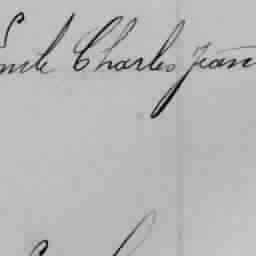 Emile Charles Jean